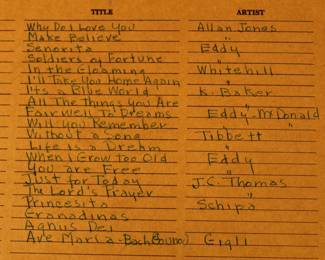 TITLE ARTIST
Why Do I Love You Allan Jones
Make Believe "
Senorita Eddy
Soldiers of Fortune "
In the Gloaming Whitehill
I'll Take You Home Again "
It's a Blue World K. Baker
All The Things You Are "
Farewell To Dreams Eddy-McDonald
Will You Remember "
Without a Song Tibbett
Life is a Drehm "
When I Grow too Old Eddy
You are Free "
Just for Today J.C. Thomas
The Lord's Prayer "
Princesita Schipa
Granadinas "
Agnus Dei
Ave Maria-Bach Gounod Gigli